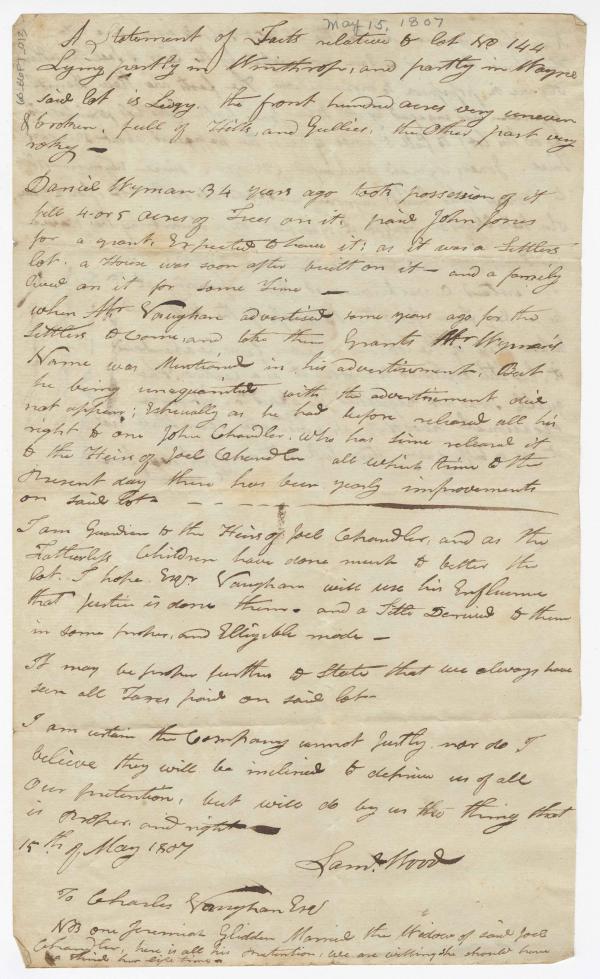 May 15, 1807
A Statement of Facts relative to lot No 144
Lying partly in Winthrop, and partly in Wayne
said lot is Ledgy. the front hundred acres very uneven
& broken. full of Hills, and Gullies. the Other part very
rokey —
Daniel Wyman 34 years ago took possession of it
fell 4 or 5 acres of Trees on it. paid John Jones
for a grant. Expected to have it; as it was a Settlers
lot. a House was soon after built on it — and a family
lived on it for some Time —
when Mr Vaughan advertised some years ago for the
Settlers to Come, and take their Grants Mr. Wyman's
Name was Mentioned in his advertisement. But
he being unaquainted with the advertisement did
not appear; Eshecially as he had before released all his
right to one John Chandler. Who has since released it
to the Heirs of Joel Chandler all which time to the
Present day there has been yearly improvements
on said lot -
I am Guardien to the Heirs of Joel Chandler, and as the
Fatherless Children have done much to better the
lot. I hope Esqr Vaughan will use his Enfluence
that justice is done them. and a Title Derived to them
in some proper, and Elligible mode —
It may be proper further to State that we always have
seen all Taxes paid on said lot -
I am certain the Company cannot justly. nor do I
believe they will be inclined to deprive us of all
Our pretention, but will do by us the thing that
is Proper, and right —
15th of May 1807
Saml. Wood
To Charles Vaughan Esqr
NB one Jeremiah Glidden Married the Widow of said Joel
Chandler, here is all his pretention; we are willing she should have
her life time